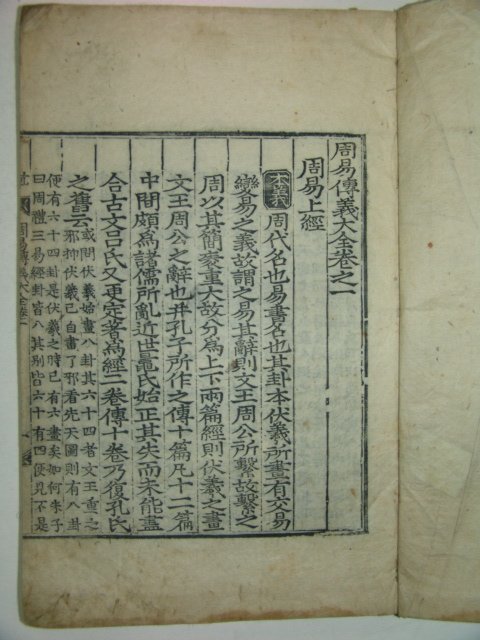 周易傳義大全卷之一
周易上經
本義 周代名也易書名也其卦本伏羲所畫有交易
變易之義故謂之易其辭則文王周公所繫故繫之
周以其簡袠重大故分爲上下兩篇經則伏羲之畫
文王周公之辭也幷孔子所作之傳十篇凡十二篇
中間頗爲諸儒所亂近世晁氏始正其失而未能盡
合古文呂氏又更定著爲經二卷傳十卷乃復孔氏
之舊云 或問伏羲始畫八卦其六十四者文王重之
邪抑伏羲已自畫了邪看先天圖則有八卦
便有六十四卦是伏羲之時已有六畫矣如何朱子
曰周禮三易經卦皆八其別皆六十有四便見不是
周易傳義大全卷一